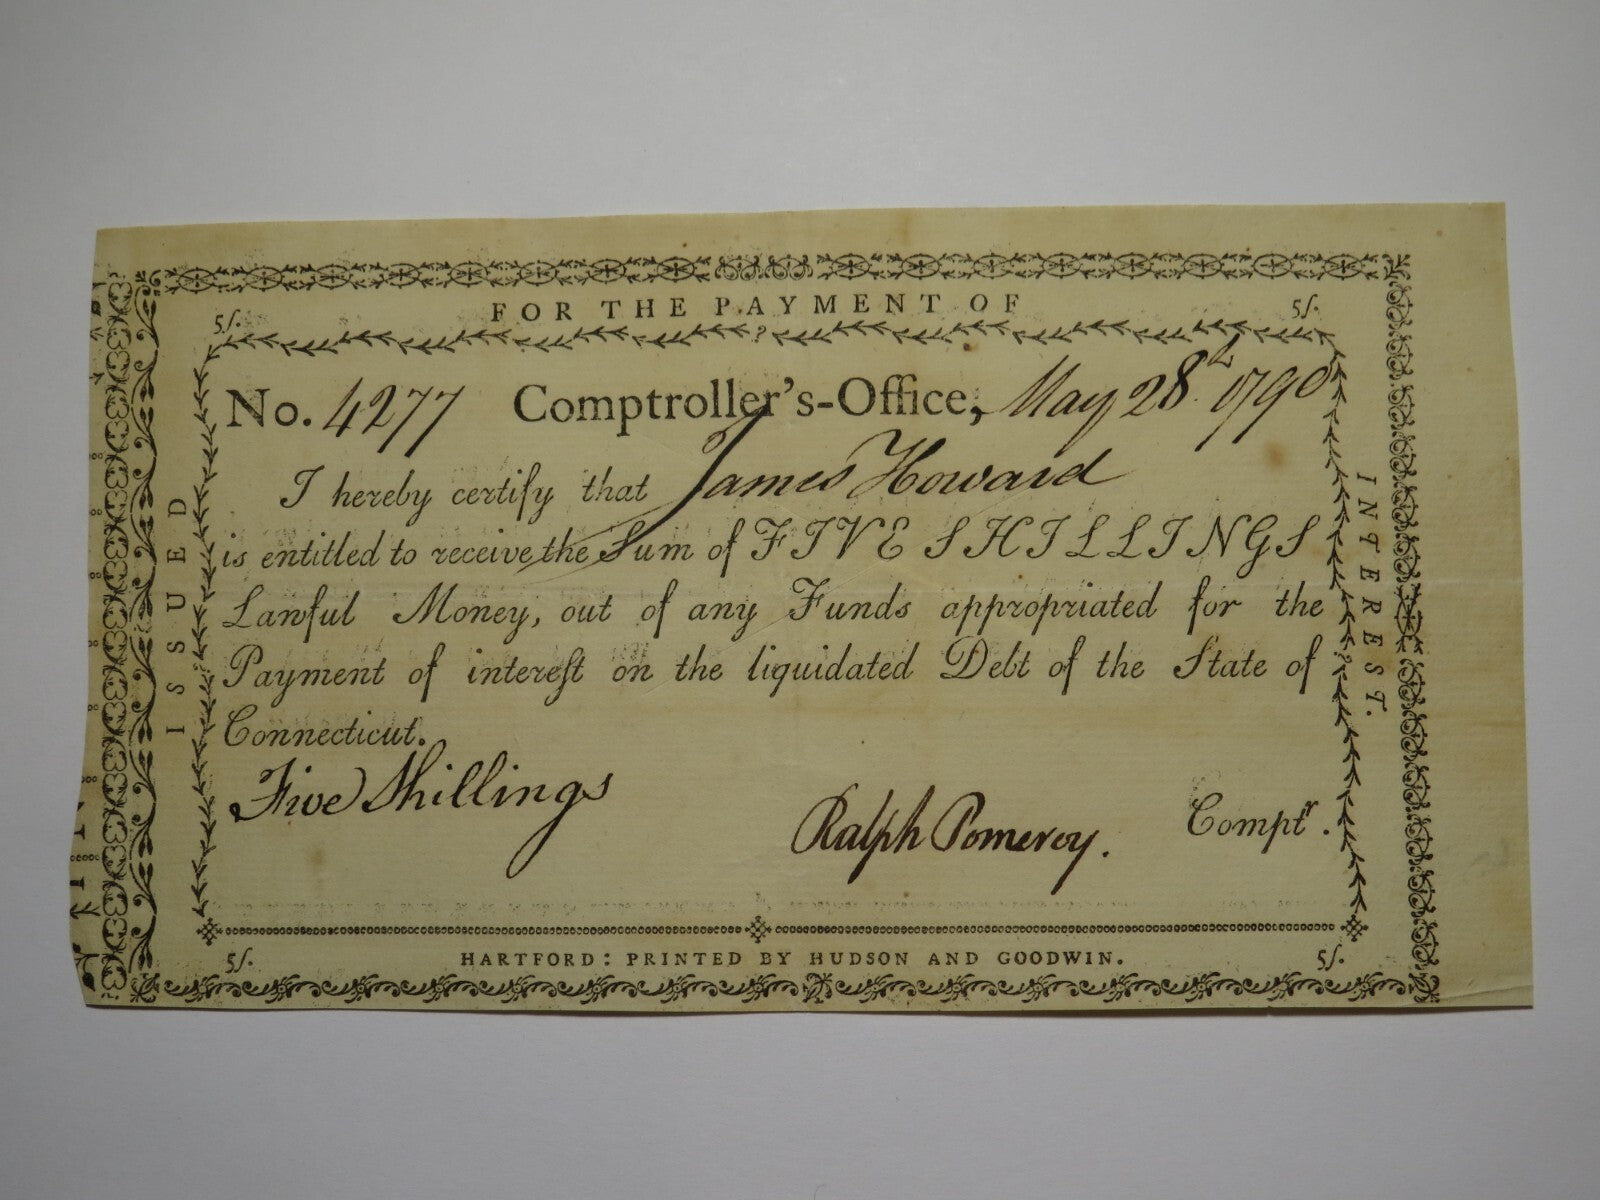 ISSUED
FOR THE PAYMENT OF
INTEREST.
5/. 5/.
No. 4277 Comptroller's-Office, May 28th 1790
I hereby certify that James Howard
is entitled to receive the Sum of FIVE SHILLINGS
Lawful Money, out of any Funds appropriated for the
Payment of intereſt on the liquidated Debt of the State of
Connecticut.
Five Shillings
Ralph Pomeroy. Comptr.
5/. HARTFORD: PRINTED BY HUDSON AND GOODWIN. 5/.